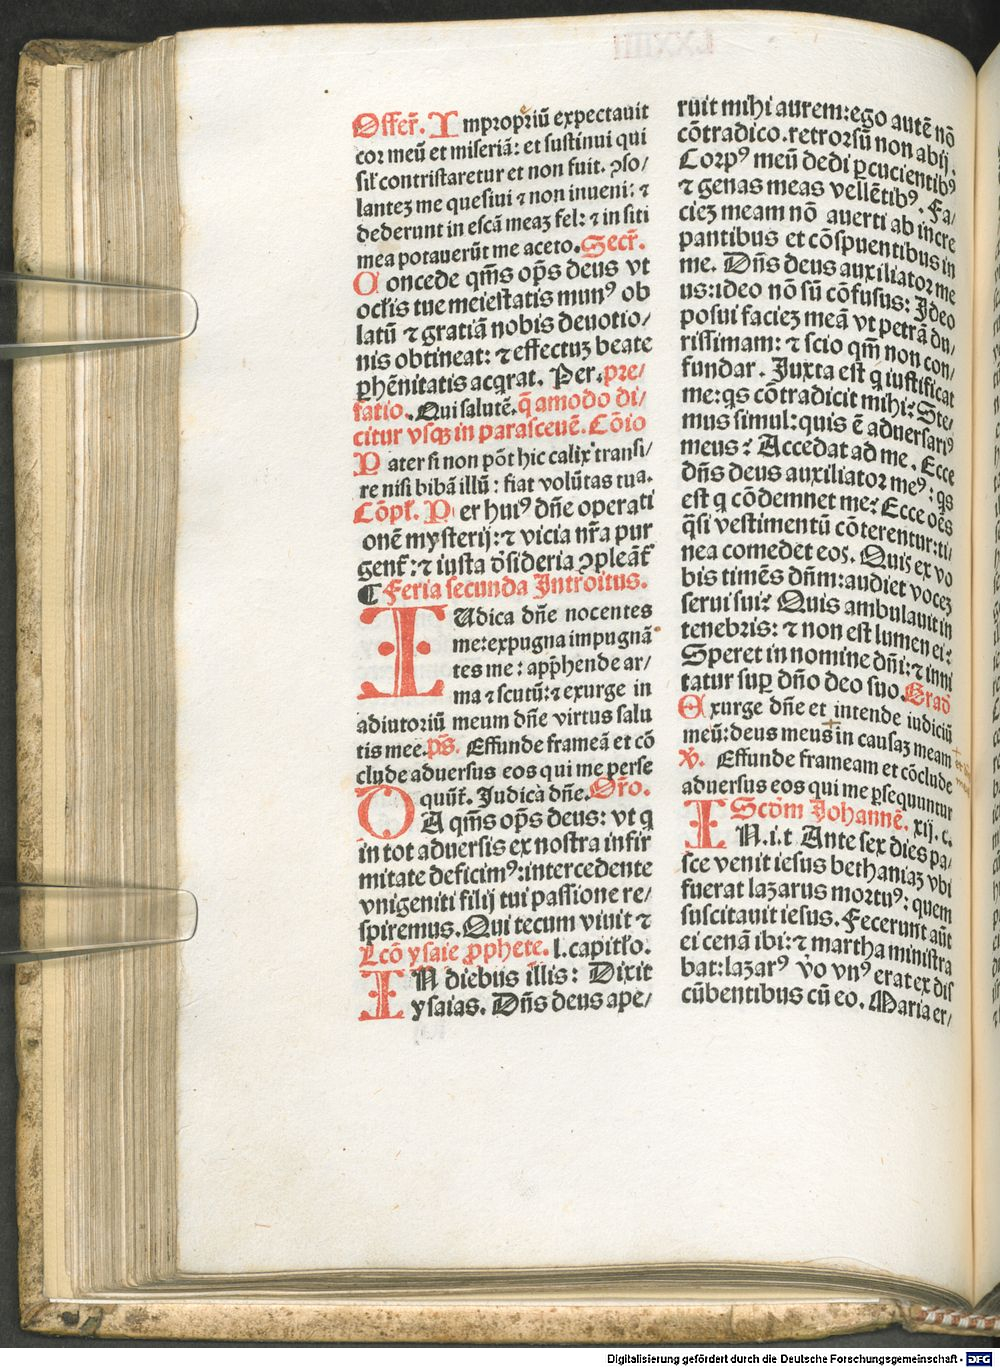 Offer̄. Impropriū expectauit
cor meū et miseriā: et sustinui qui
sil̄ contristaretur et non fuit. ꝯso/
lanteȝ me quesiui ⁊ non inueni: ⁊
dederunt in escā meaȝ fel: ⁊ in siti
mea potauerūt me aceto. Secr̄.
Concede qm̄s op̄s deus vt
ocl̄is tue meiestatis munꝰ ob
latū ⁊ gratiā nobis deuotio/
nis obtineat: ⁊ effectuȝ beate
ꝑhēnitatis acqrat. Per. pre/
fatio. Qui salutē. q̄ amodo di/
citur vsqȝ in parasceuē. Cōio
Pater si non pōt hic calix transi/
re nisi bibā illū: fiat volūtas tua.
Cōpl̄. Per huiꝰ dn̄e operati
onē mysterij: ⁊ vicia nr̄a pur
gent̄: ⁊ iusta d̓sideria ꝯpleāt̄
¶ Feria secunda Introitus.
IUdica dn̄e nocentes
me: expugna impugnā
tes me: app̄hende ar/
ma ⁊ scutū: ⁊ exurge in
adiutoriū meum dn̄e virtus salu
tis mee. ps̄. Effunde frameā et cō
clude aduersus eos qui me perse
quūt̄. Judica dn̄e. Or̄o.
DA qm̄s op̄s deus: vt q
in tot aduersis ex nostra infir
mitate deficimꝰ: intercedente
vnigeniti filij tui passione re/
spiremus. Qui tecum viuit ⁊
Lcō ysaie ꝓphete. l. capitl̓o.
IN diebus illis: Dixit
ysaias. Dn̄s deus ape/
ruit mihi aurem: ego autē nō
cōtradico. retrorsū non abij.
Corpꝰ meū dedi ꝑcucientibꝰ
⁊ genas meas vellētibꝰ. Fa/
cieȝ meam nō auerti ab incre
pantibus et cōspuentibus in
me. Dn̄s deus auxiliator me
us: ideo nō sū cōfusus: Ideo
posui facieȝ meā vt petrā du/
rissimam: ⁊ scio qm̄ non con/
fundar. Juxta est q iustificat
me: qs cōtradicit mihi: Ste/
mus simul: quis ē aduersariꝰ
meus: Accedat ad me. Ecce
dn̄s deus auxiliator meꝰ: qs
est q cōdemnet me: Ecce oēs
q̄si vestimentū cōterentur: ti/
nea comedet eos. Quis ex vo
bis timēs dn̄m: audiet voceȝ
serui sui: Quis ambulauit in
tenebris: ⁊ non est lumen ei:
Speret in nomine dn̄i: ⁊ inni
tatur suꝑ dn̄o deo suo. Grad
Exurge dn̄e et intende iudiciū
meū: deus meus in causaȝ meam
℣. Effunde frameam et cōclude
aduersus eos qui me ꝑsequuntur
Scdm̄ Johannē. xij. c.
IN. i. t. Ante sex dies pa/
sce venit iesus bethaniaȝ vbi
fuerat lazarus mortuꝰ: quem
suscitauit iesus. Fecerunt aūt
ei cenā ibi: ⁊ martha ministra
bat: lazarꝰ v̓o vnꝰ erat ex dis
cūbentibus cū eo. Maria er/
Digitalisierung gefördert durch die Deutsche Forschungsgemeinschaft - DFG